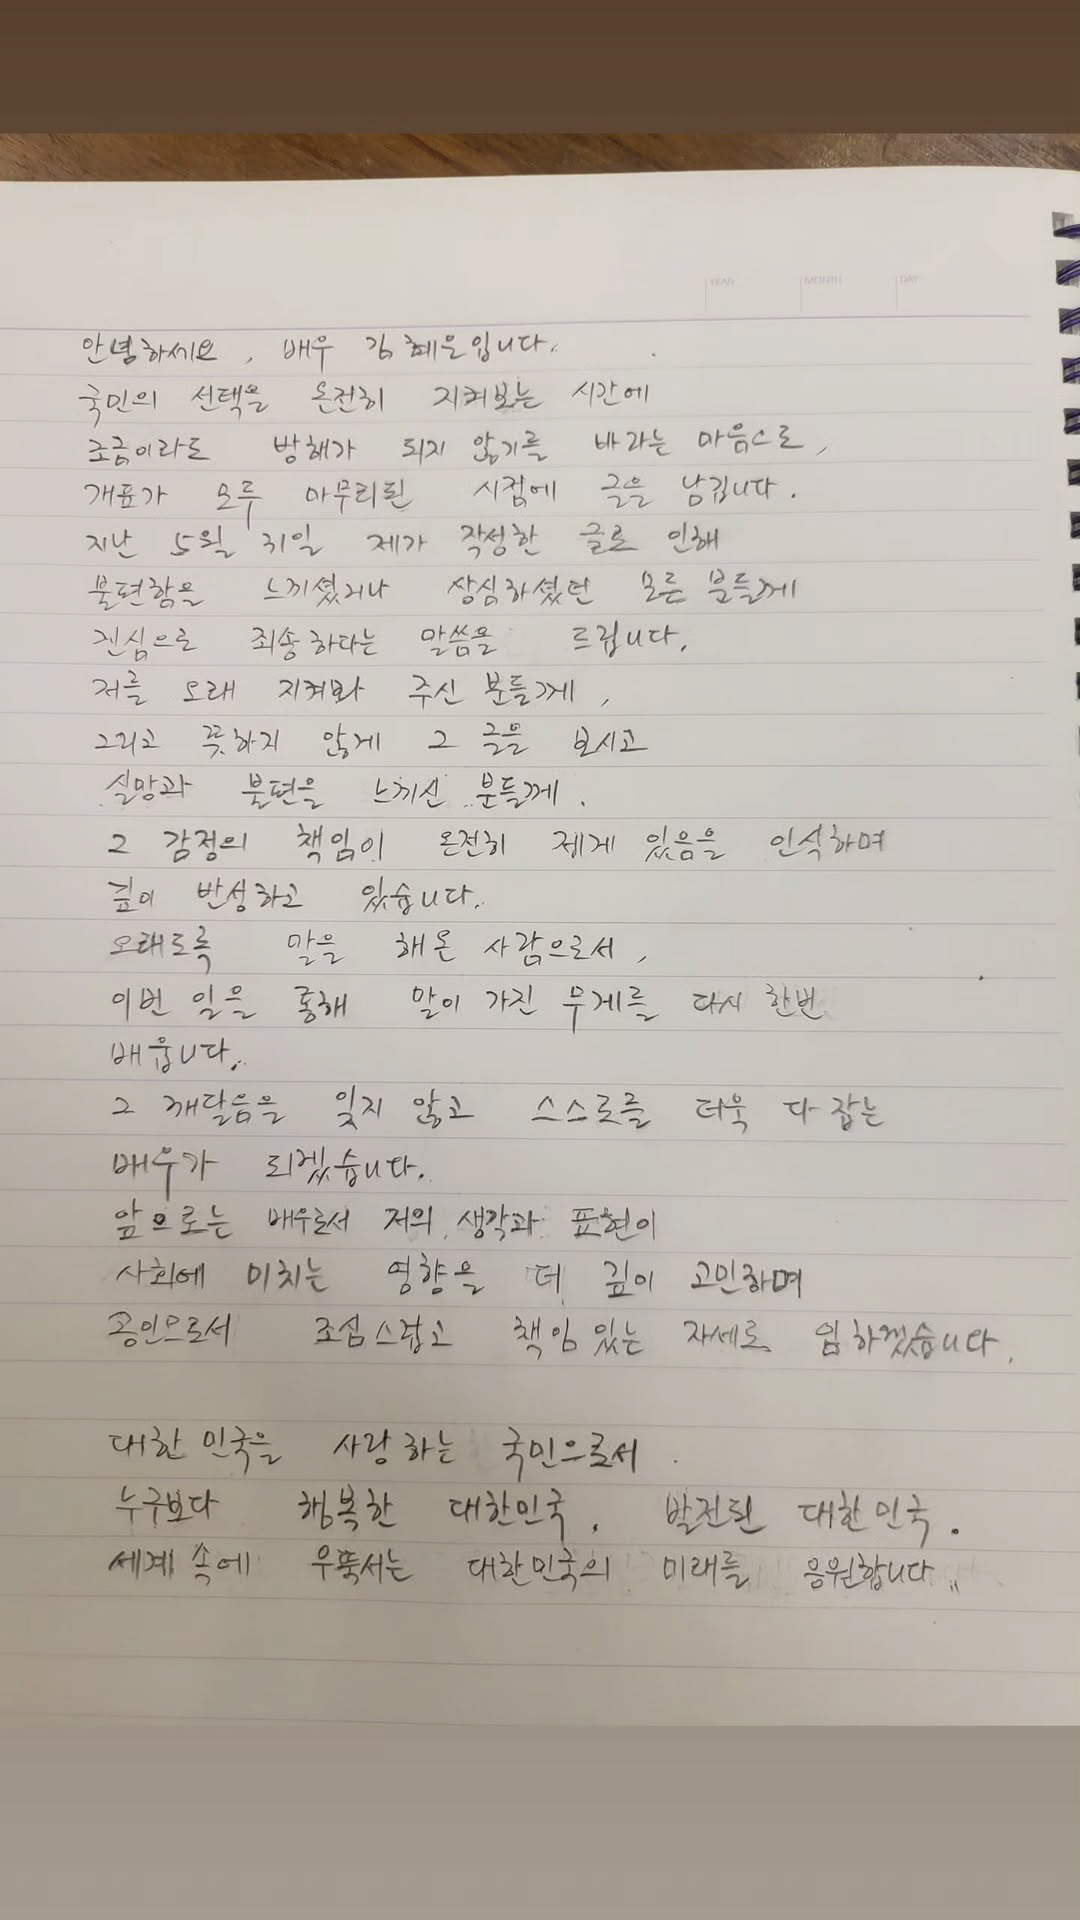 YEAR MONTH DAY
안녕하세요, 배우 김혜은입니다.
국민의 선택을 온전히 지켜보는 시간에
조금이라도 방해가 되지 않기를 바라는 마음으로,
개표가 모두 마무리된 시점에 글을 남깁니다.
지난 5월 31일 제가 작성한 글로 인해
불편함을 느끼셨거나 상심하셨던 모든 분들께
진심으로 죄송하다는 말씀을 드립니다.
저를 오래 지켜봐 주신 분들께,
그리고 뜻하지 않게 그 글을 보시고
실망과 불편을 느끼신 분들께.
그 감정의 책임이 온전히 제게 있음을 인식하며
깊이 반성하고 있습니다.
오래도록 말을 해온 사람으로서,
이번 일을 통해 말이 가진 무게를 다시 한번
배웁니다.
그 깨달음을 잊지 않고 스스로를 더욱 다잡는
배우가 되겠습니다.
앞으로는 배우로서 저의 생각과 표현이
사회에 미치는 영향을 더 깊이 고민하며
공인으로서 조심스럽고 책임 있는 자세로 임하겠습니다.
대한민국을 사랑하는 국민으로서
누구보다 행복한 대한민국, 발전된 대한민국.
세계 속에 우뚝서는 대한민국의 미래를 응원합니다"